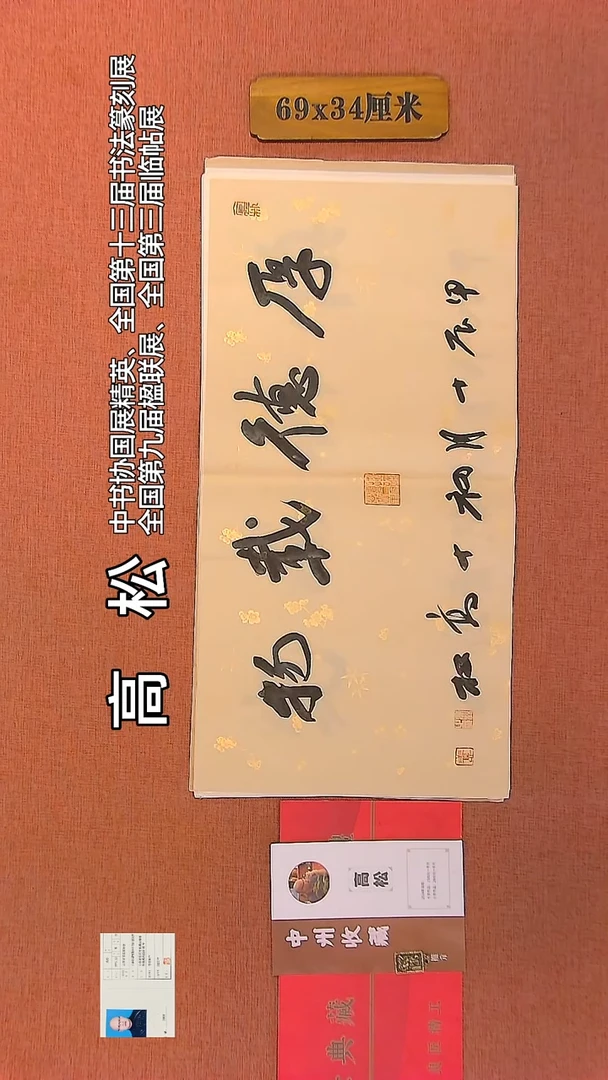 69x34厘米
高松
中书协国展精英、全国第十三届书法篆刻展
全国第九届楹联展、全国第三届临帖展
厚德载物
甲辰十月初十高松
高松
中州收藏
典藏